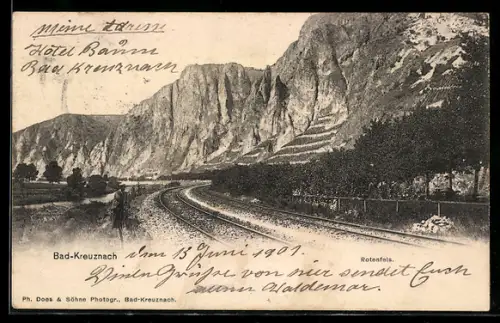 meine Adresse
Hôtel Baum
Bad Kreuznach
Bad-Kreuznach
Rotenfels.
dem 15 Juni 1901
Vielen Grüsse von hier sendet Euch
Euer Waldemar.
Ph. Doss & Söhne Photogr., Bad-Kreuznach.